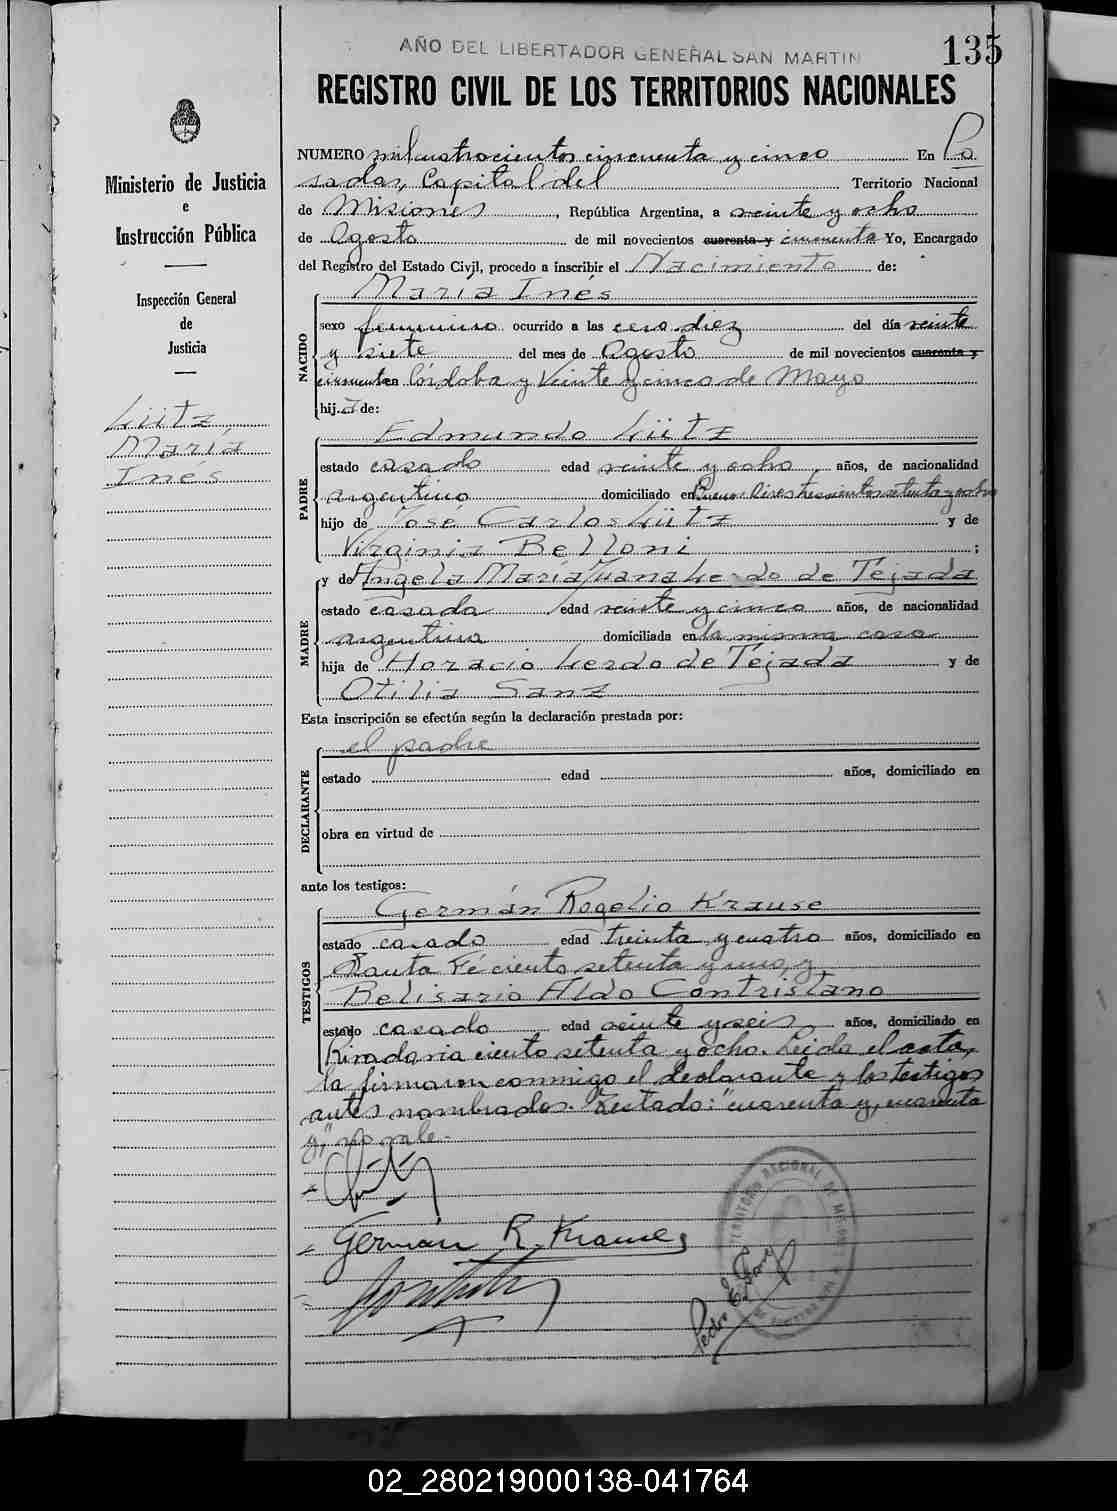 AÑO DEL LIBERTADOR GENERAL SAN MARTIN
135
REGISTRO CIVIL DE LOS TERRITORIOS NACIONALES
Ministerio de Justicia
e
Instrucción Pública
Inspección General
de
Justicia
Lütz
María
Inés
NUMERO mil cuatrocientos cincuenta y cinco En Po
sadas, Capital del Territorio Nacional
de Misiones, República Argentina, a veinte y ocho
de Agosto de mil novecientos cuarenta y cincuenta Yo, Encargado
del Registro del Estado Civil, procedo a inscribir el Nacimiento de:
NACIDO
María Inés
sexo femenino ocurrido a las cero diez del día veinte
y siete del mes de Agosto de mil novecientos cuarenta y
cincuenta en Córdoba y Veinte y cinco de Mayo
hija de:
PADRE
Edmundo Lütz
estado casado edad veinte y ocho años, de nacionalidad
argentino domiciliado en Buenos Aires trescientos setenta y ocho
hijo de José Carlos Lütz y de
Virginia Belloni;
MADRE
y de Angela María Juana Lerdo de Tejada
estado casada edad veinte y cinco años, de nacionalidad
argentina domiciliada en la misma casa
hija de Horacio Lerdo de Tejada y de
Otilia Sanz
Esta inscripción se efectúa según la declaración prestada por:
DECLARANTE
el padre
estado edad años, domiciliado en
obra en virtud de
ante los testigos:
TESTIGOS
Germán Rogelio Krause
estado casado edad treinta y cuatro años, domiciliado en
Santa Fé ciento setenta y uno y
Belisario Aldo Contristano
estado casado edad veinte y seis años, domiciliado en
Rivadavia ciento setenta y ocho. Leida el acta,
la firmaron conmigo el declarante y los testigos
antes nombrados. Testado: "cuarenta y, cuarenta
y," no vale.
Germán R. Krause
TERRITORIO NACIONAL DE MISIONES
Pedro E.
02_280219000138-041764